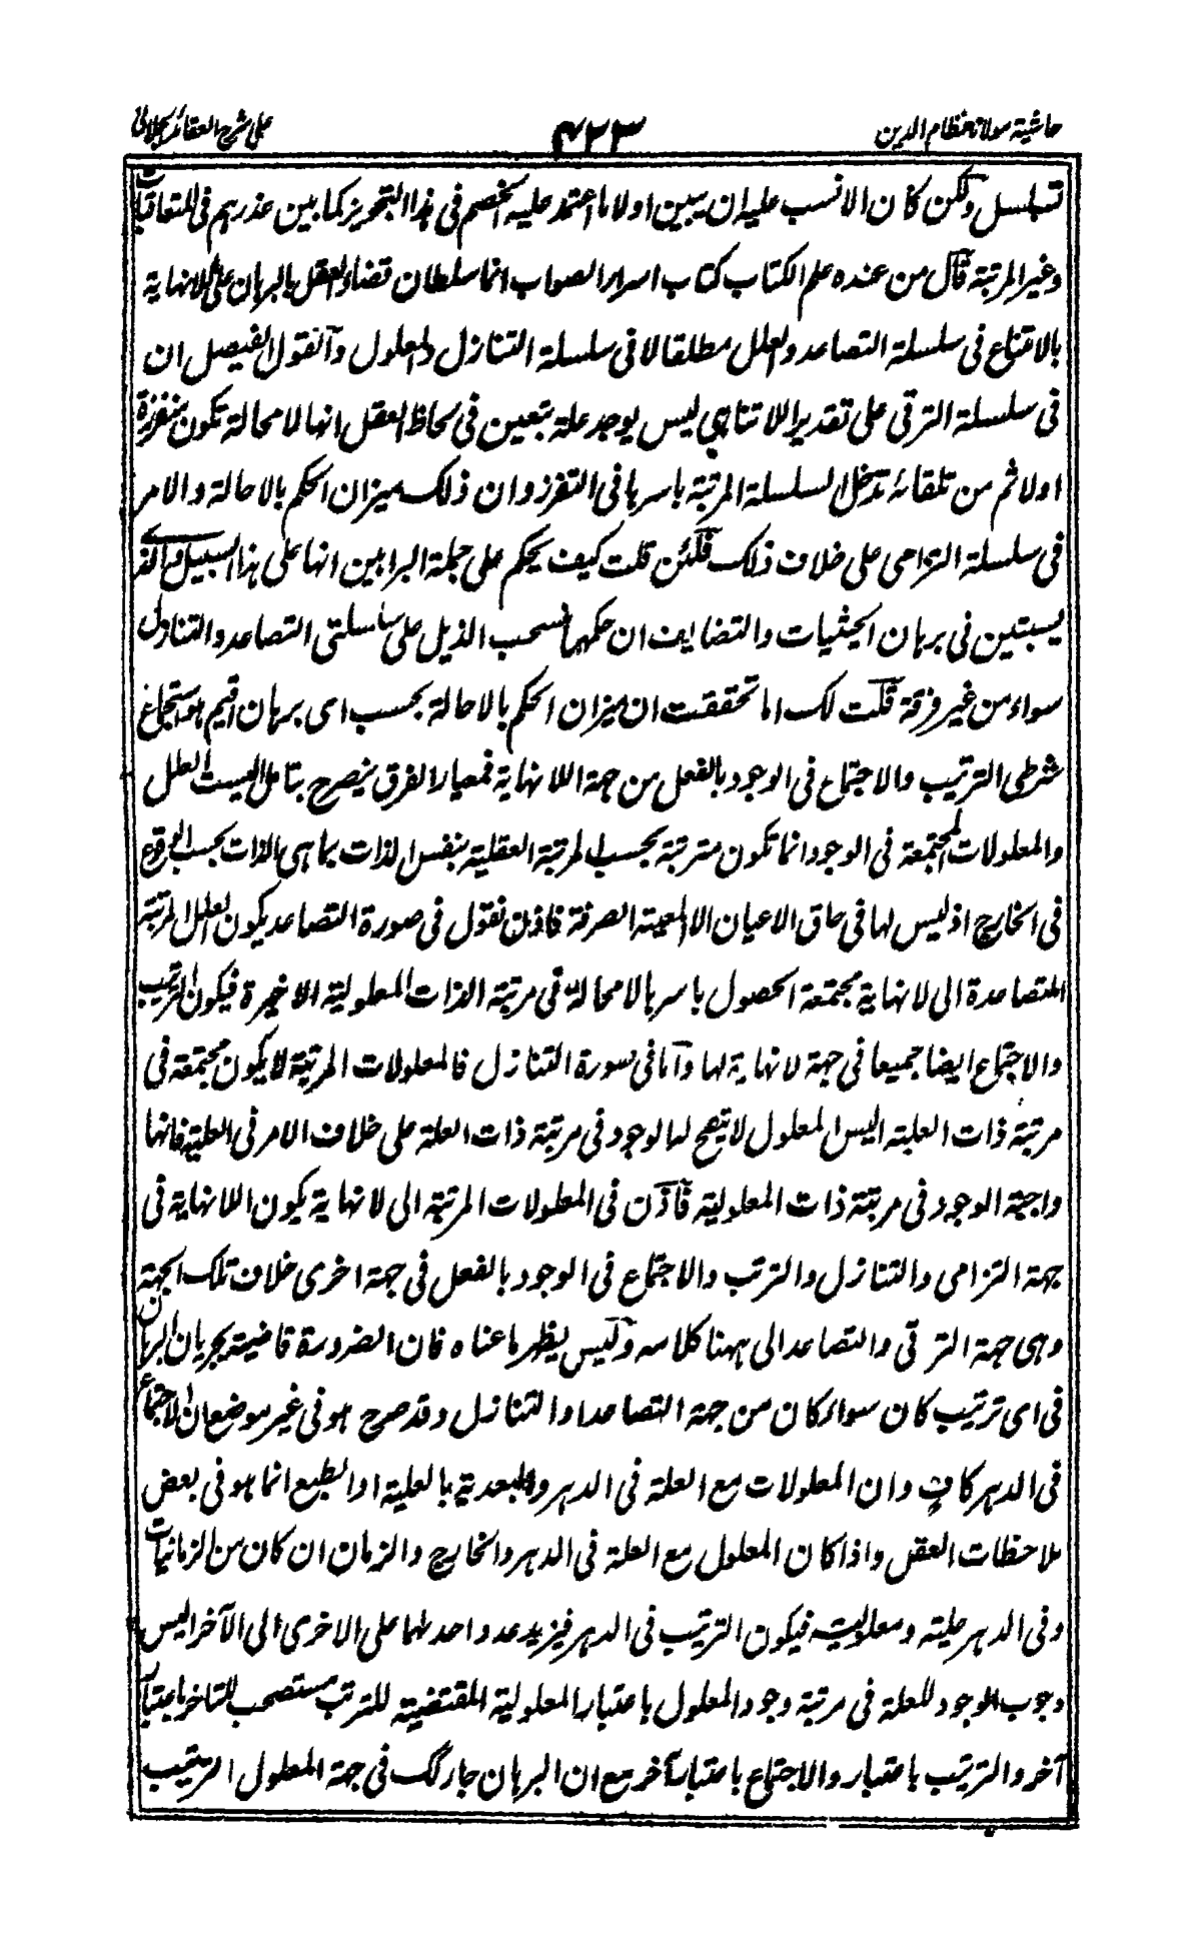 حاشية مولانا نظام الدين ۴۲۳ على شرح العقائد الجلالى
تسلسل ولكن كان الانسب عليه ان يبين اولا ما اعتمد عليه الخصم فى هذا التجويز كما بين عذرهم فى المتعاقبات
وغير المرتبة قال من عنده علم الكتاب كتاب اسرار الصواب انما سلطان قضاء العقل بالبرهان على اللانهاية
بالامتناع فى سلسلة التصاعد والعلل مطلقا لا فى سلسلة التنازل والمعلول والقول الفيصل ان
فى سلسلة الترقى على تقدير اللاتناهى ليس يوجد علة يتعين فى لحاظ العقل انها لا محالة تكون متفرزة
اولا ثم من تلقائه تدخل السلسلة المرتبة باسرها فى التفرز وان ذلك ميزان الحكم بالاحالة والامر
فى سلسلة الترامى على خلاف ذلك فلئن قلت كيف يحكم على جملة البراهين انها على هذا السبيل
يستبين فى برهان الحيثيات والتضايف ان حكمهما سحب الذيل على سلسلتى التصاعد والتنازل
سواء من غير فرقة قلت لك اما تحققت ان ميزان الحكم بالاحالة بحسب اى برهان اقيم هو استجماع
شرطى الترتيب والاجتماع فى الوجود بالفعل من جهة اللانهاية فمعيار الفرق ينصرح بتامل اليست العلل
والمعلولات المجتمعة فى الوجود انما تكون مترتبة بحسب المرتبة العقلية بنفس الذات بما هى الذات بحسب الوقوع
فى الخارج اذ ليس لها فى حاق الاعيان الا المعية الصرفة فاذن نقول فى صورة التصاعد يكون العلل المرتبة
المتصاعدة الى لا نهاية مجتمعة الحصول باسرها لا محالة فى مرتبة الذات المعلولية الاخيرة فيكون الترتيب
والاجتماع ايضا جميعا فى جهة لا نهاية لها واما فى صورة التنازل فالمعلولات المرتبة لا يكون مجتمعة فى
مرتبة ذات العلية اليس المعلول لا يتصح لها لوجود فى مرتبة ذات العلة على خلاف الامر فى العلية فانها
واجبة الوجود فى مرتبة ذات المعلولية فاذن فى المعلولات المرتبة الى لا نهاية يكون اللانهاية فى
جهة الترامى والتنازل والترتب والاجتماع فى الوجود بالفعل فى جهة اخرى خلاف تلك الجهة
وهى جهة الترقى والتصاعد الى ههنا كلامه وليس يظهر ما عناه فان الضرورة قاضية بجريان البرهان
فى اى ترتيب كان سواء كان من جهة التصاعد او التنازل وقد صرح هو فى غير موضع ان الاجتماع
فى الدهر كاف وان المعلولات مع العلة فى الدهر والبعدية بالعلية او الطبع انما هو فى بعض
ملاحظات العقل واذا كان المعلول مع العلة فى الدهر والخارج والزمان ان كان من الزمانيات
وفى الدهر علية ومعلولية فيكون الترتيب فى الدهر فيزيد عدد واحد لهما على الاخرى الى الآخر اليس
وجوب الوجود للعلة فى مرتبة وجود المعلول باعتبار المعلولية المقتضية للترتب مستصحب للتاخر باعتبار
آخر والترتيب باعتبار والاجتماع باعتبار آخر مع ان البرهان جار لك فى جهة المعلول الترتيب